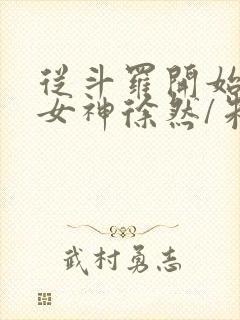 從斗羅開始
女神徐然/
武村勇志